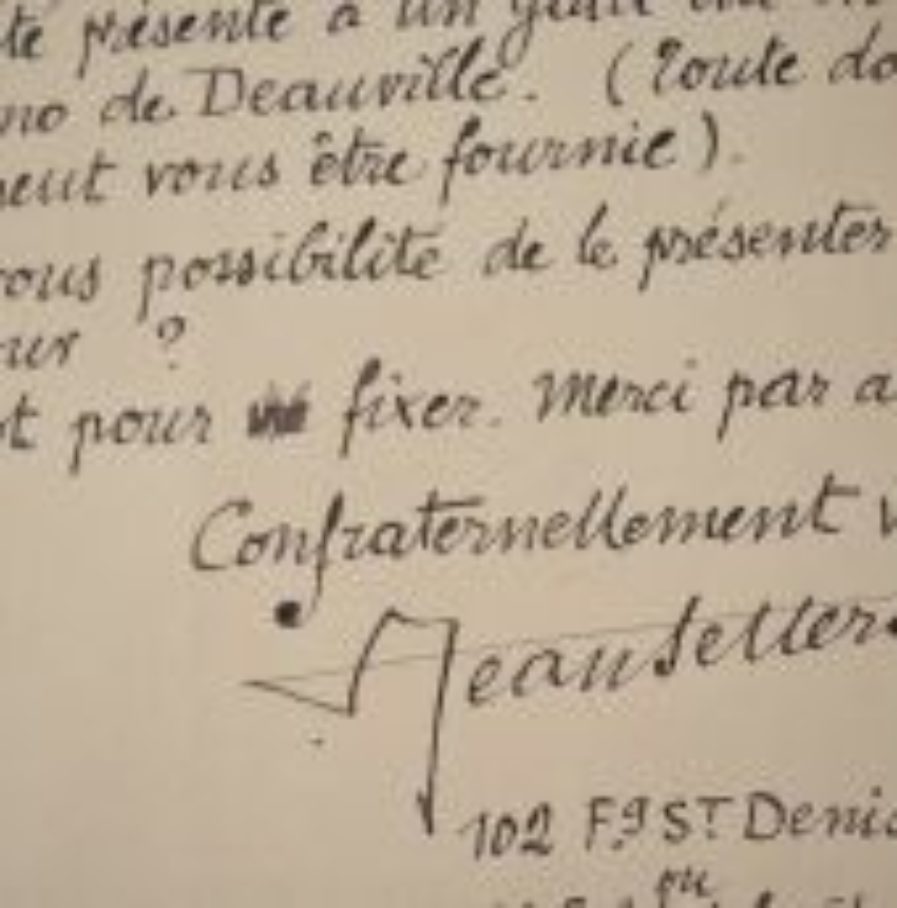 té présente à un
no de Deauville. (Toute do
peut vous être fournie).
vous possibilité de le présenter
our ?
t pour fixer. Merci par a
Confraternellement v
Jean Seller
102 Fg ST Denis
ou